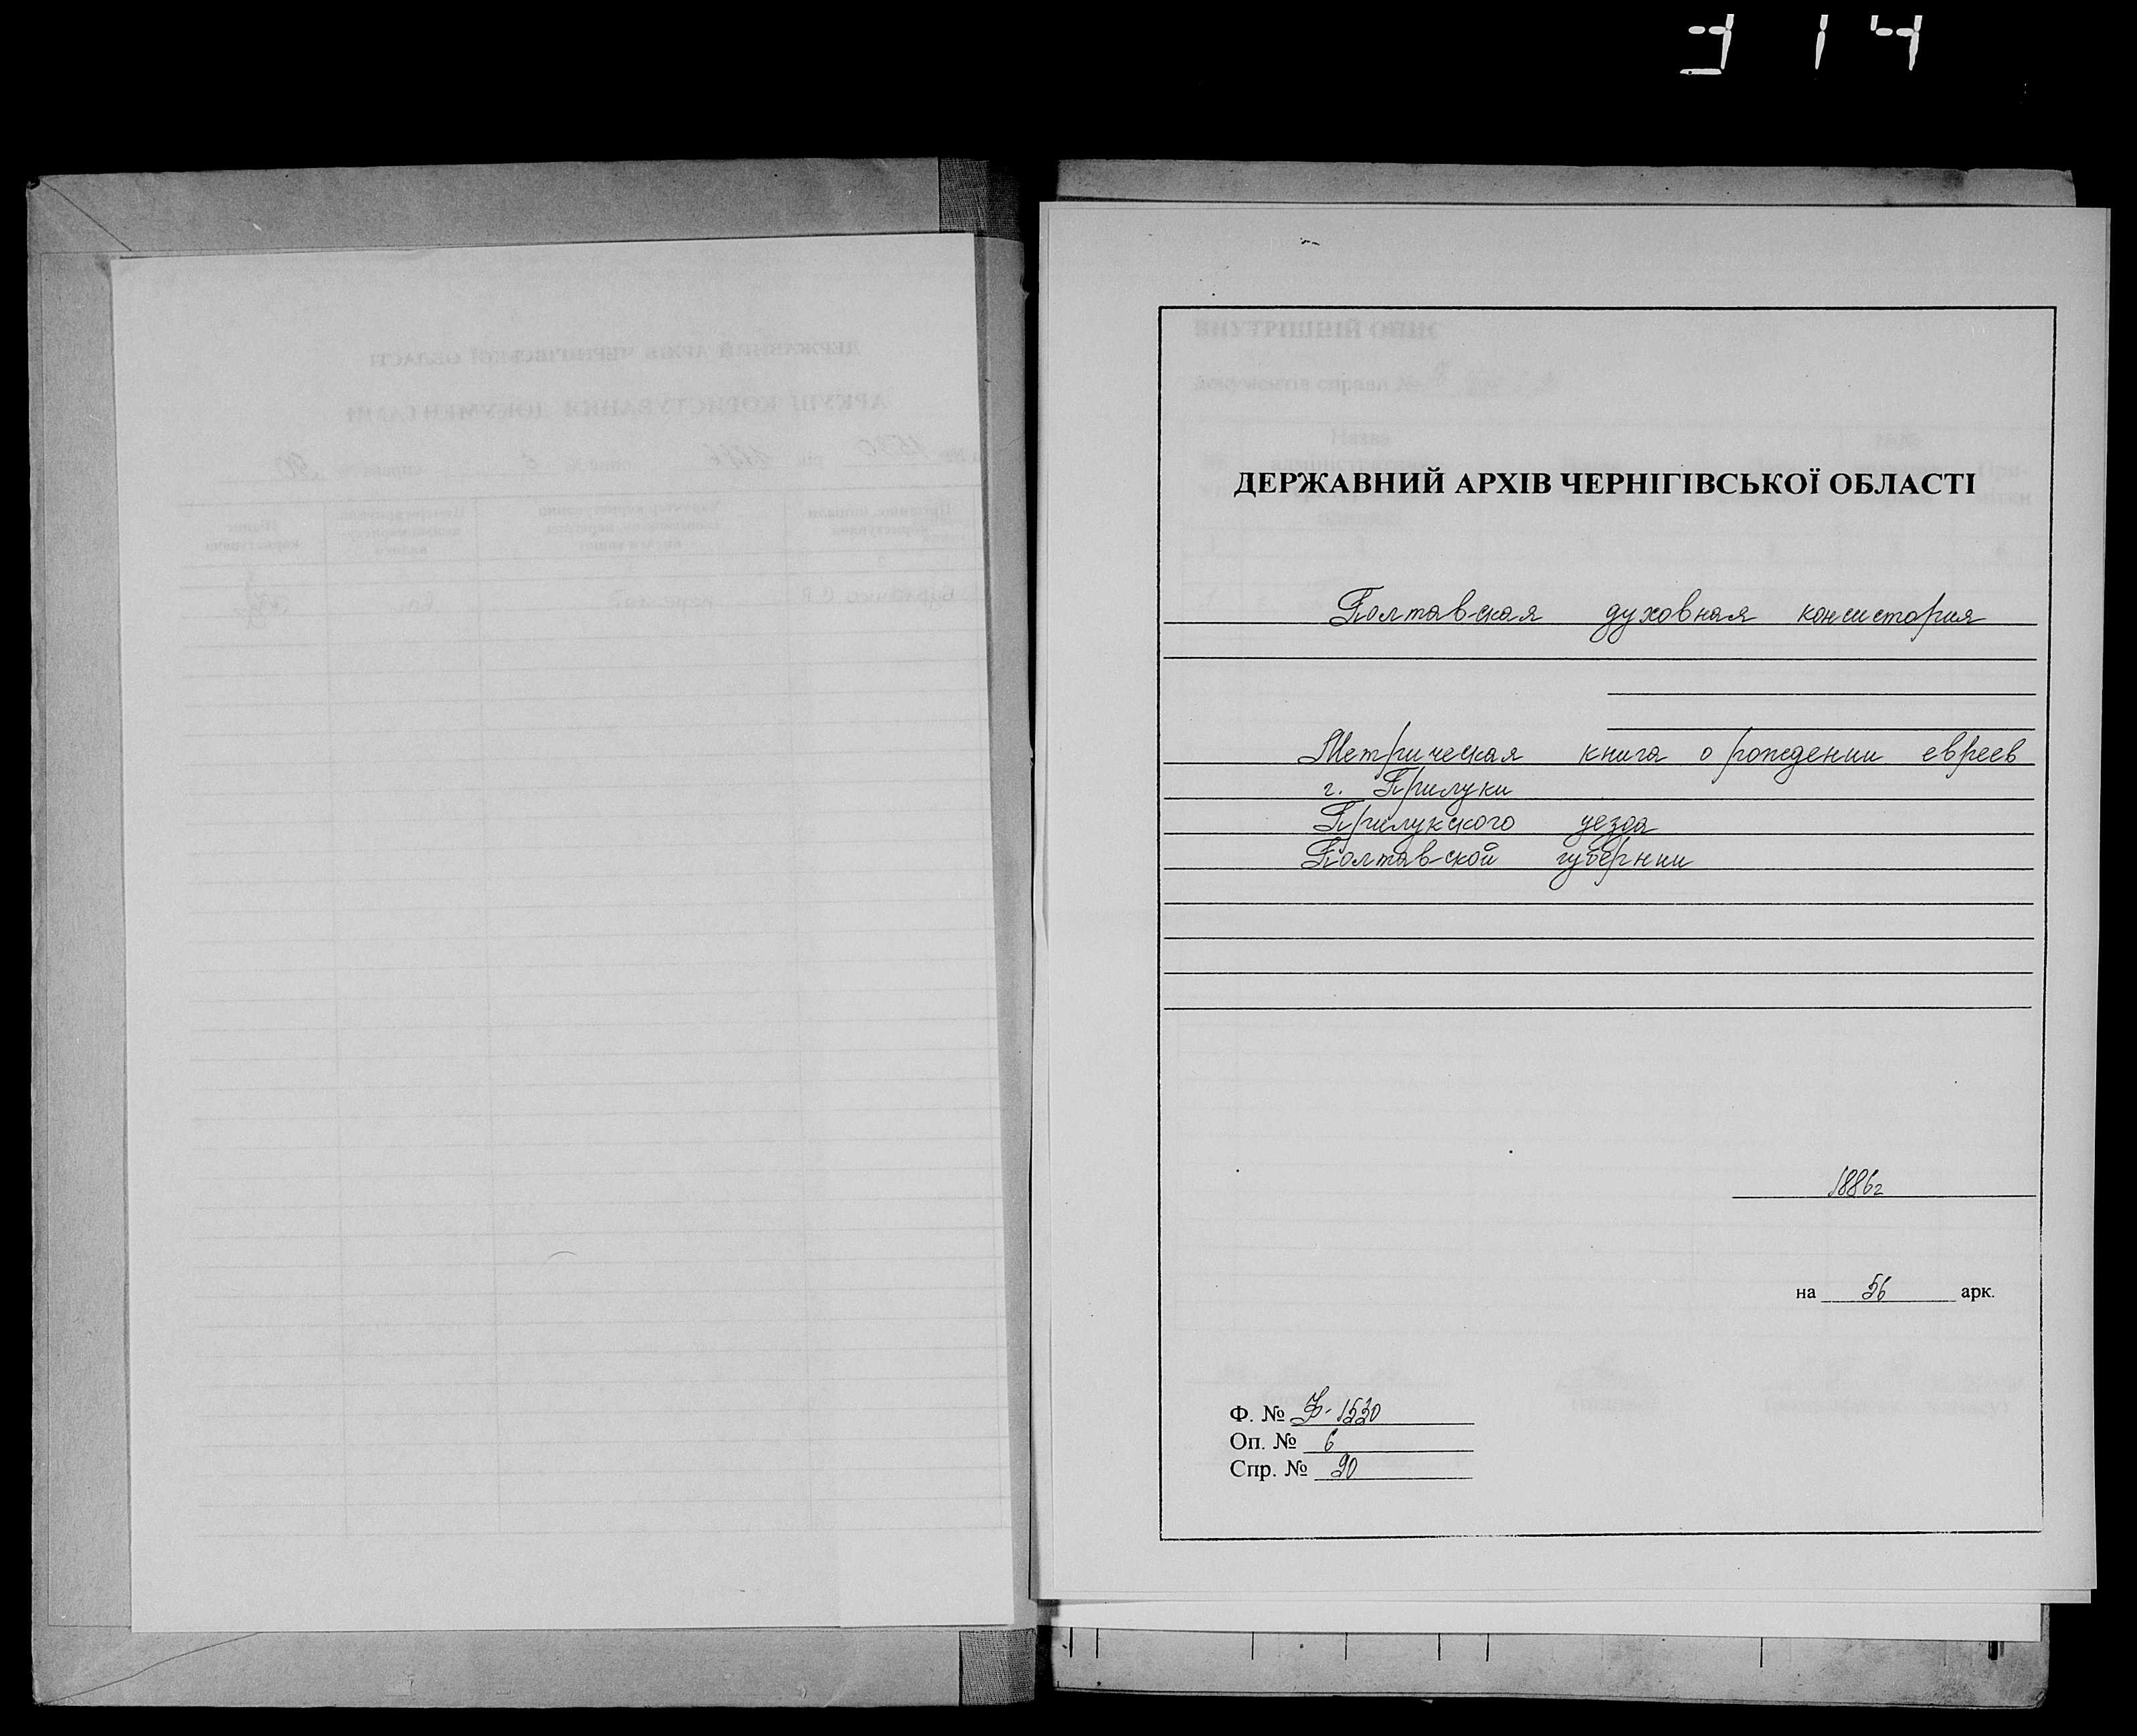 314
ДЕРЖАВНИЙ АРХІВ ЧЕРНІГІВСЬКОЇ ОБЛАСТІ
Полтавская духовная консистория
Метрическая книга о рождении евреев
г. Прилуки
Прилукского уезда
Полтавской губернии
1886г
на 56 арк.
Ф. № Ф-1530
Оп. № 6
Спр. № 90